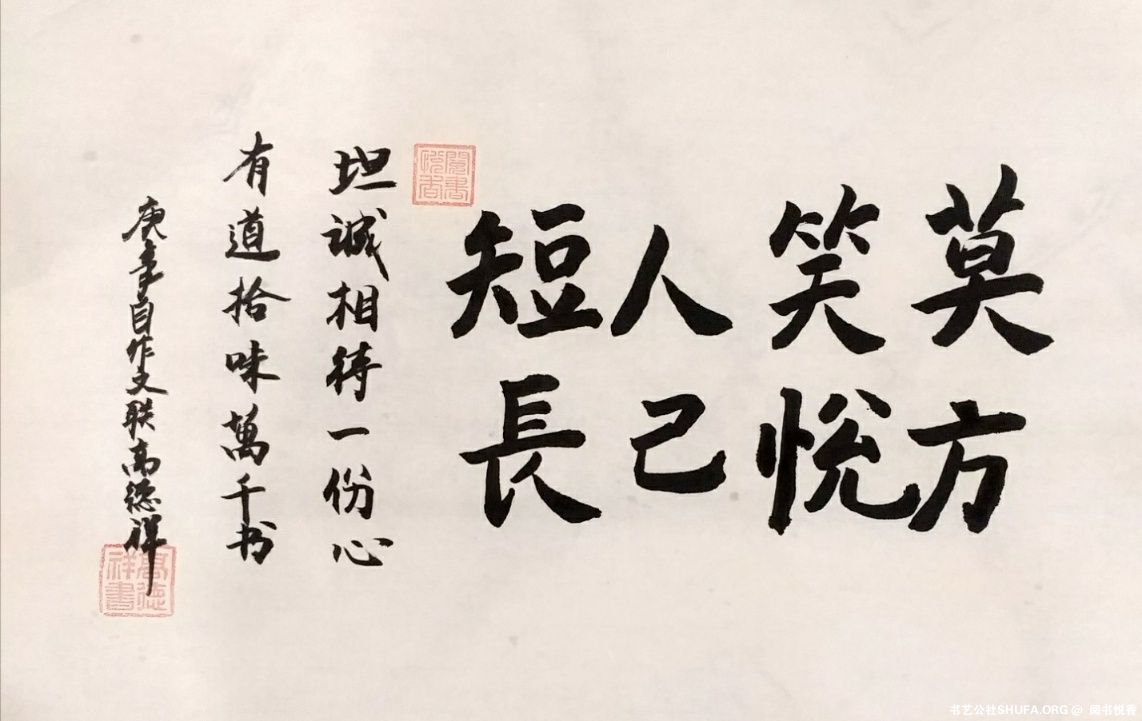 莫笑人短
方悦己長
閱書悅香
坦誠相待一份心
有道拾味萬千书
庚自作文联高德祥
高德祥書
书艺公社SHUFA.ORG @ 阅书悦香